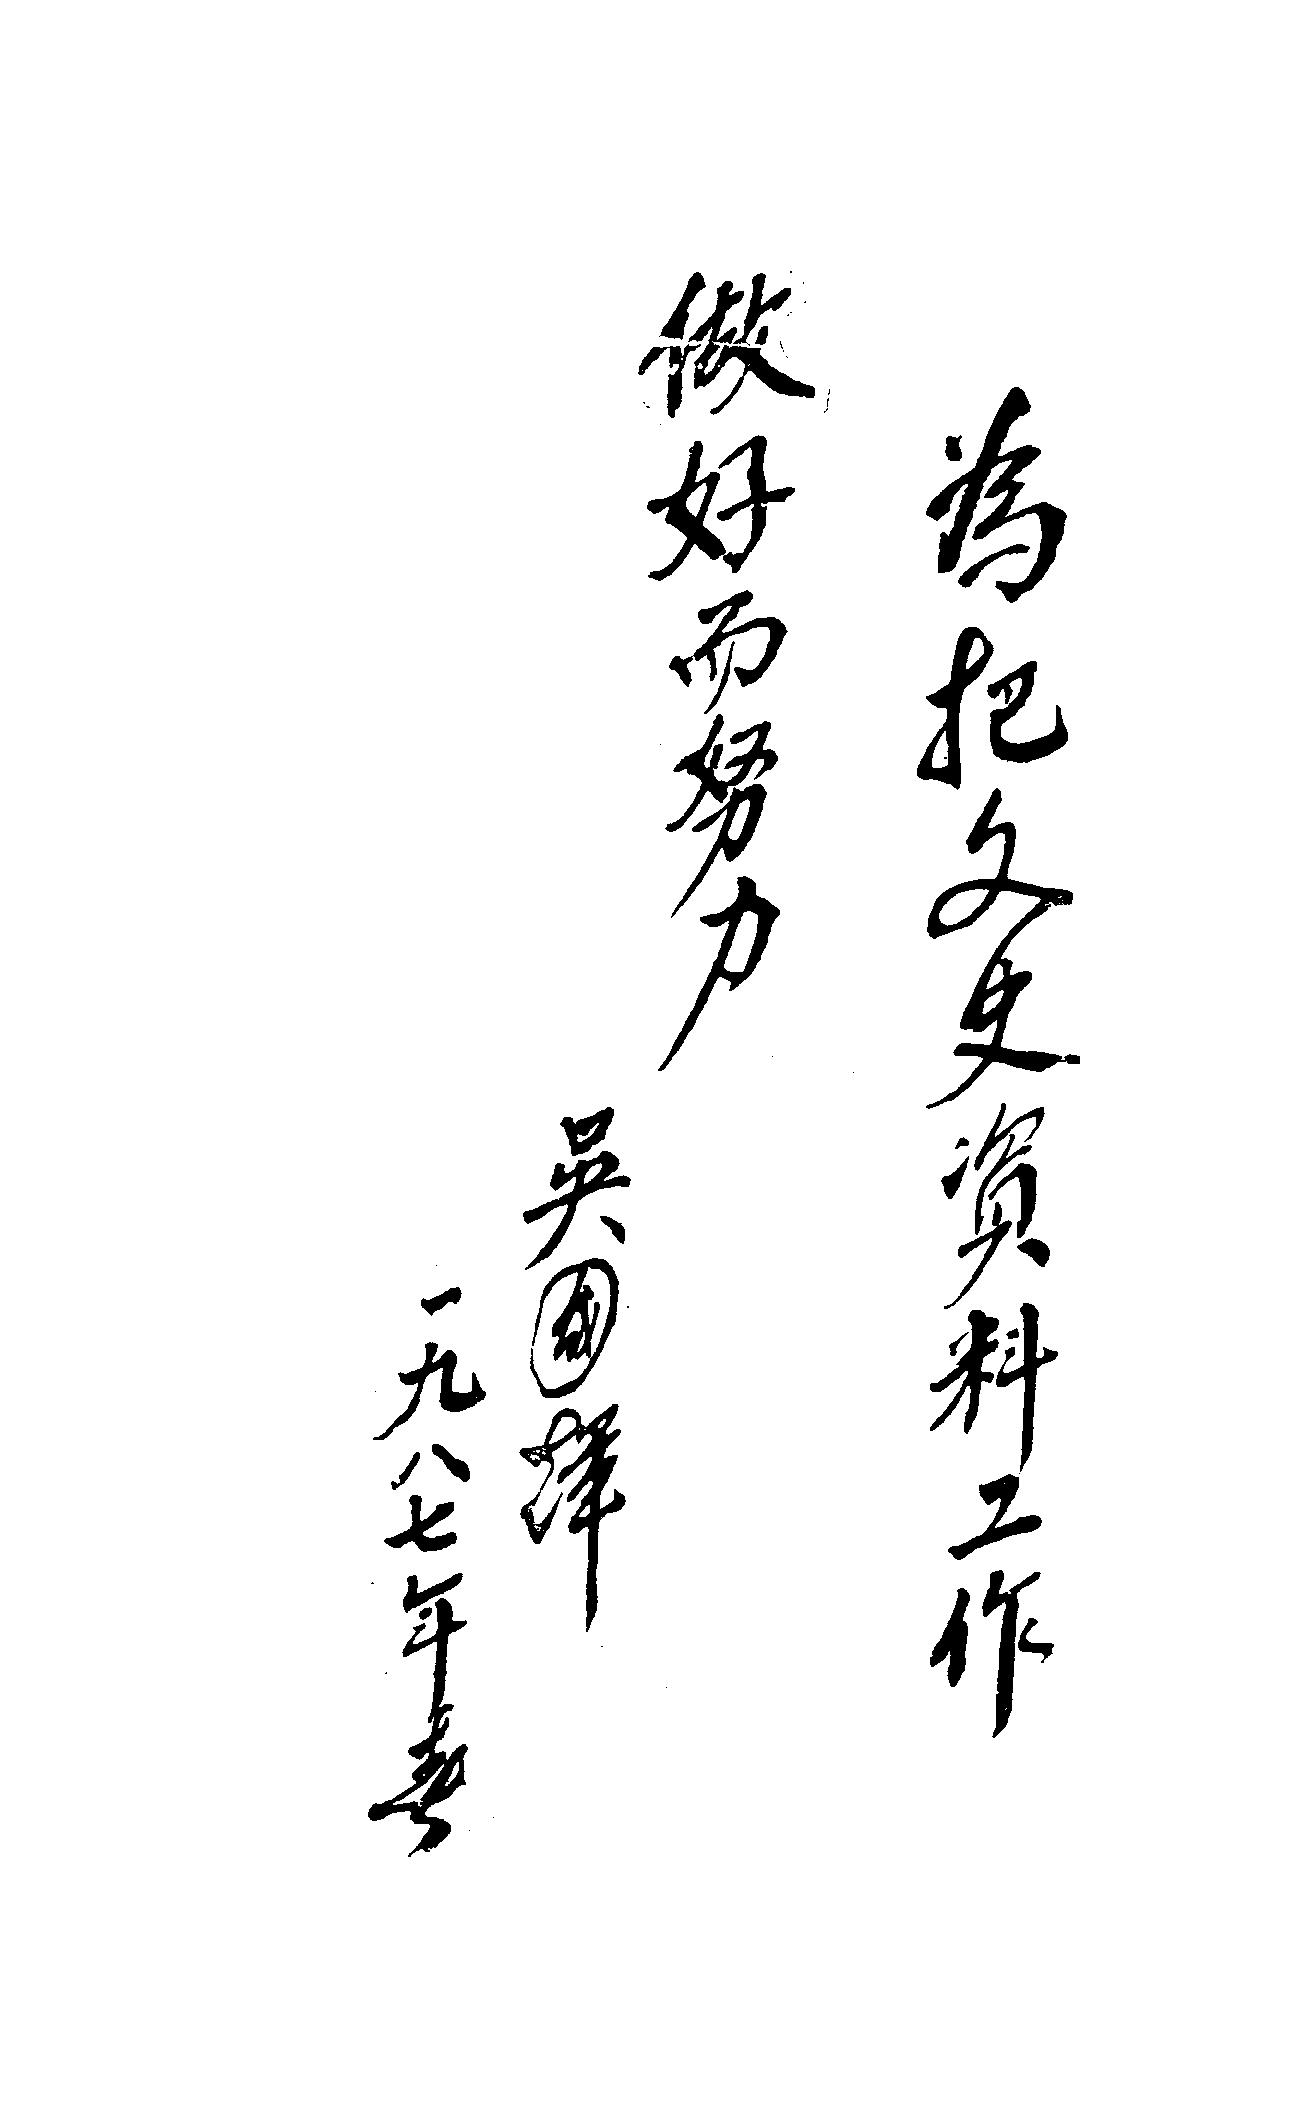 為把文史資料工作
做好而努力
吳國
一九八七年春